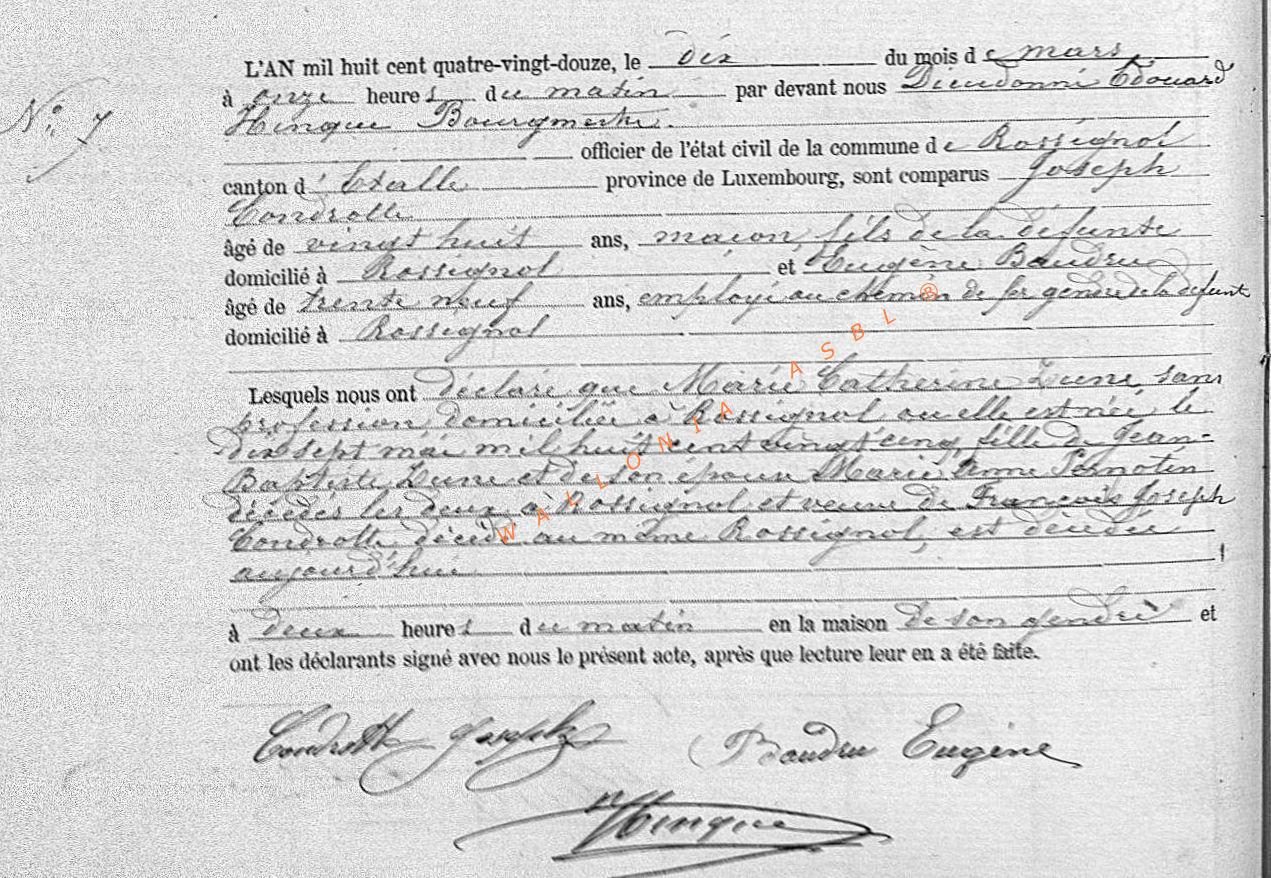 N° 7
L'AN mil huit cent quatre-vingt-douze, le dix du mois de mars
à onze heures du matin par devant nous Dieudonné Edouard
Hinque Bourgmestre.
officier de l'état civil de la commune de Rossignol
canton d'Etalle province de Luxembourg, sont comparus Joseph
Condrotte
âgé de vingt huit ans, maçon, fils de la défunte
domicilié à Rossignol et Eugène Baudru
âgé de trente neuf ans, employé au chemin de fer gendre de la défunte
domicilié à Rossignol
Lesquels nous ont déclaré que Marie Catherine sans
profession, domiciliée à Rossignol ou elle est née, le
dix sept mai mil huit cent vingt cinq, fille de Jean-
Baptiste et de son épouse Marie Anne
décédés les deux à Rossignol et veuve de François Joseph
Condrotte, décédé au même Rossignol, est décédée
aujourd'hui
à deux heures du matin en la maison de son gendre et
ont les déclarants signé avec nous le présent acte, après que lecture leur en a été faite.
Condrotte Joseph Baudru Eugène
Hinque
WALLONIA ASBL ®